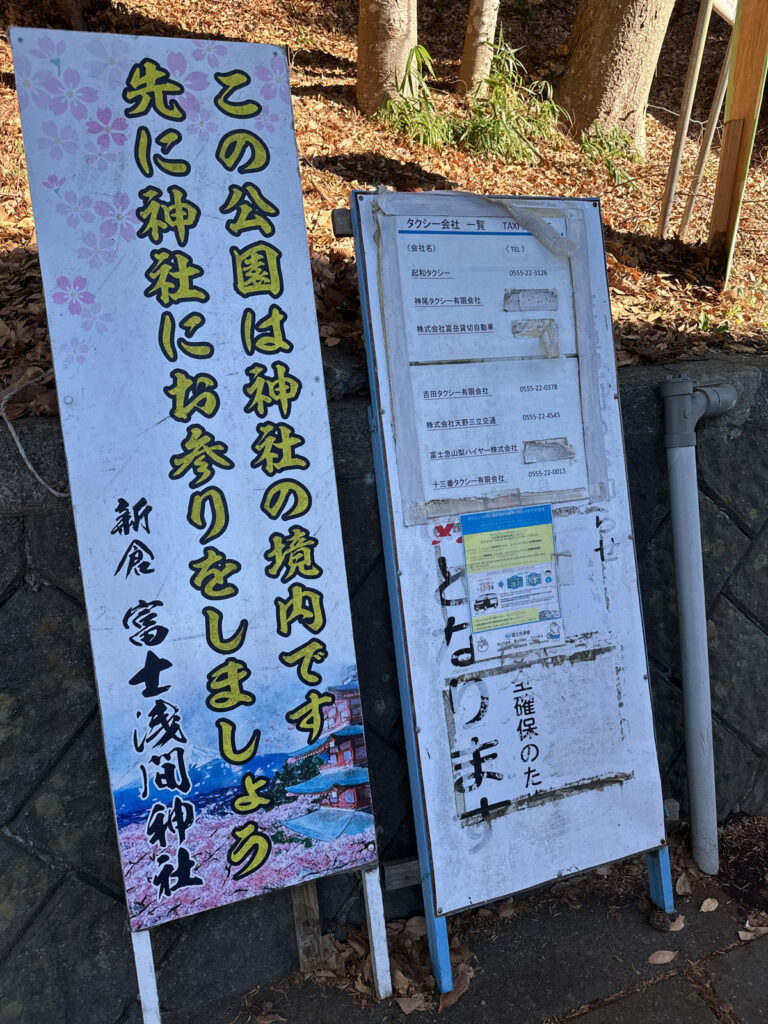 この公園は神社の境内です
先に神社にお参りをしましょう
新倉 富士浅間神社
タクシー会社 一覧 TAXI
(会社名) (TEL)
起和タクシー 0555-22-3126
神尾タクシー有限会社
株式会社富岳貸切自動車
吉田タクシー有限会社 0555-22-0378
株式会社天野三立交通 0555-22-4545
富士急山梨ハイヤー株式会社
十三番タクシー有限会社 0555-22-0013
となります
確保のた